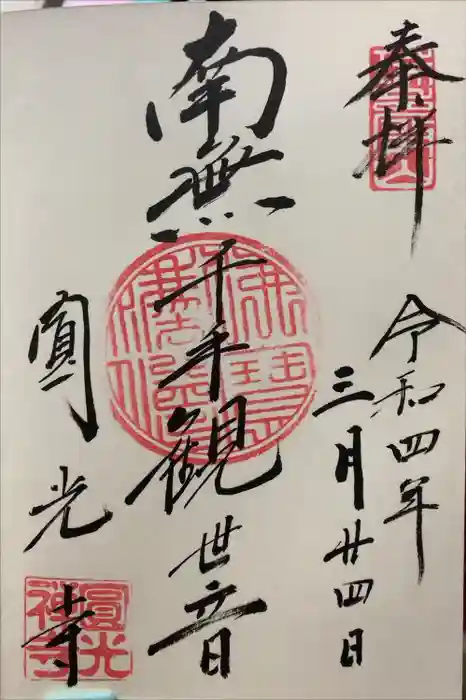 奉拝
令和四年
三月廿四日
南無千手観世音
圓光寺
佛法僧寳
圓光禅寺